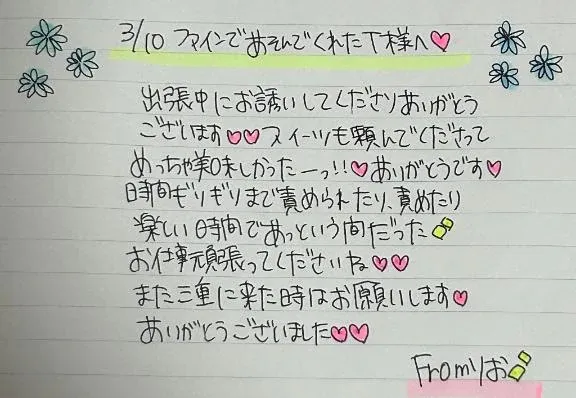 3/10 ファインであそんでくれたT様へ♥
出張中にお誘いしてくださりありがとう
ございます♥♥スイーツも頼んでくださって
めっちゃ美味しかったーっ!!♥ありがとうです♥
時間ギリギリまで責められたり、責めたり
楽しい時間であっという間だった
お仕事頑張ってくださいね♥♥
また三重に来た時はお願いします♥
ありがとうございました♥♥
Fromりお